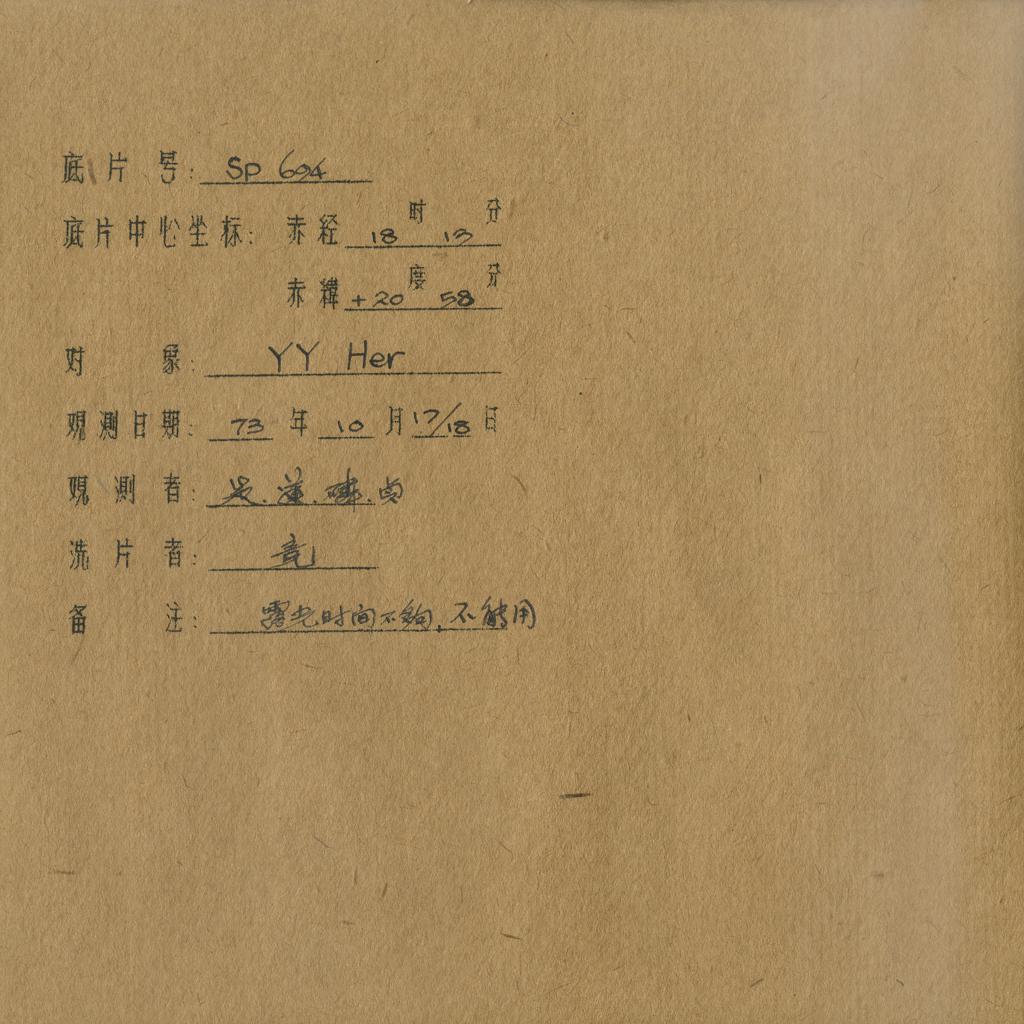 底片号: Sp 694
底片中心坐标: 赤经 18时 13分
赤緯 +20度 58分
对象: YY Her
观测日期: 73年 10月17/18日
观测者:
洗片者: 亮
备注: 露光时间不夠, 不能用